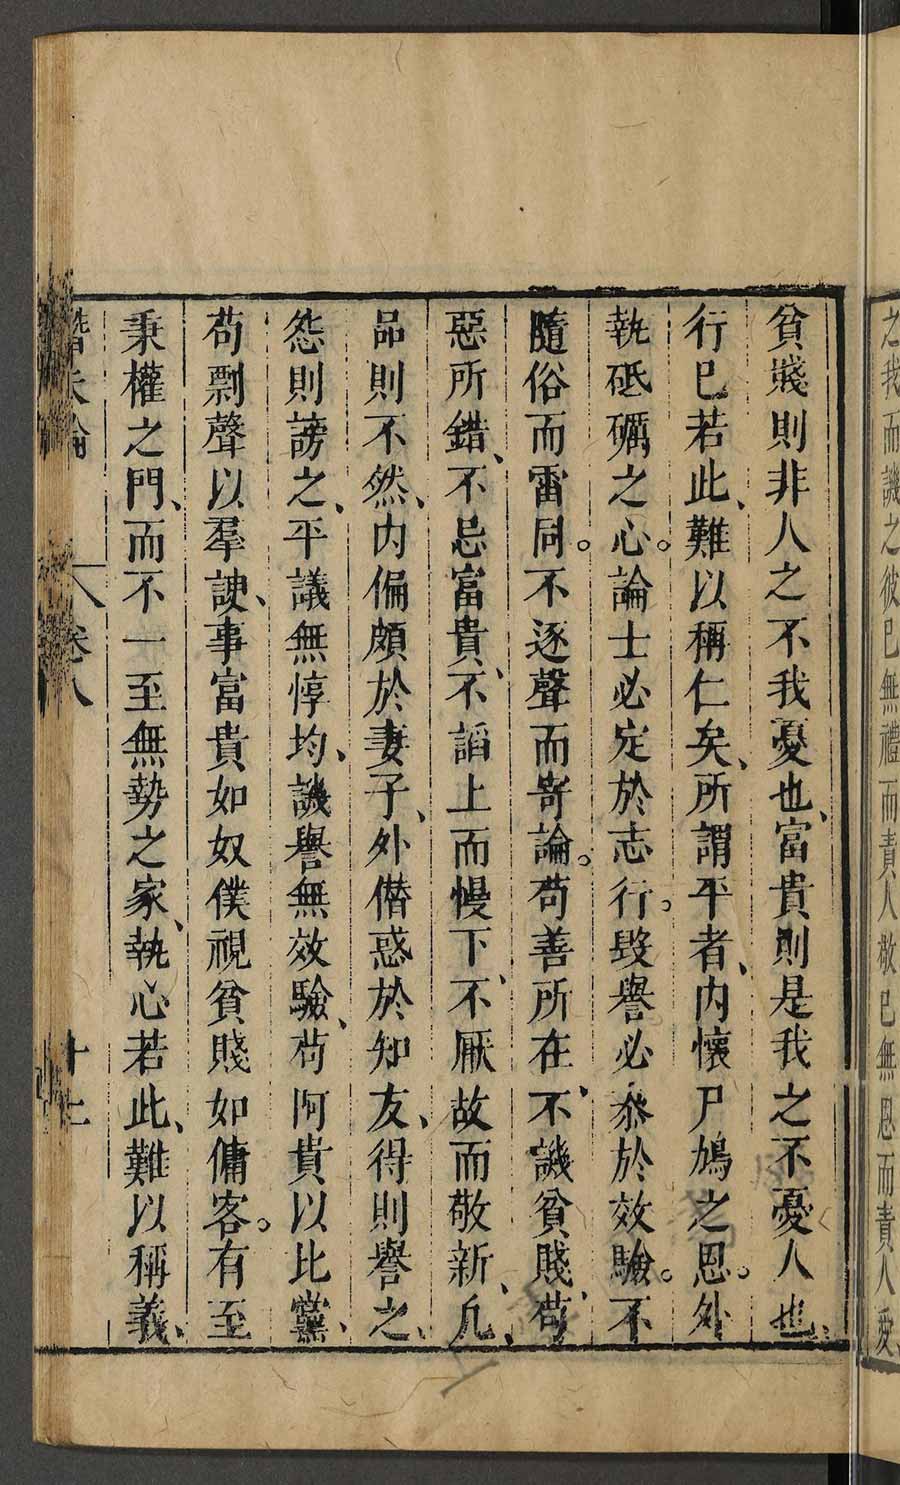 之我而譏之彼巳無禮而責人敬巳無恩而責人愛、
貧賤則非人之不我憂也、富貴則是我之不憂人也、
行巳若此、難以稱仁矣、所謂平者、内懷尸鳩之恩。外
執砥礪之心。論士必定於志行。毀譽必叅於效驗。不
隨俗而雷同。不逐聲而寄論。苟善所在、不譏貧賤、苟
惡所錯、不忌富貴、不謟上而慢下、不厭故而敬新、凡
品則不然、内偏頗於妻子、外僣惑於知友、得則譽之、
怨則謗之、平議無惇均、譏譽無效驗、苟阿貴以比黨、
苟剽聲以羣諛、事富貴如奴僕視貧賤如傭客。有至
秉權之門、而不一至無勢之家、執心若此、難以稱義、
潛夫論
卷八
十七